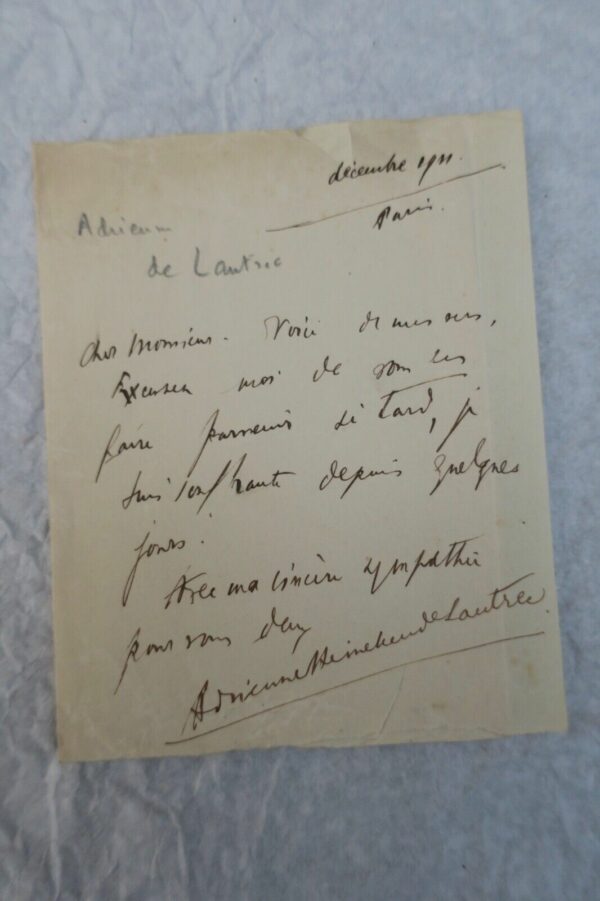 décembre 1911.
Paris.
Adrienne
de Lautrec
Cher Monsieur - Voici de mes vers,
Excusez moi de vous les
faire parvenir si tard, je
suis souffrante depuis quelques
jours.
Avec ma sincère sympathie
pour vous deux
Adrienne de Lautrec.